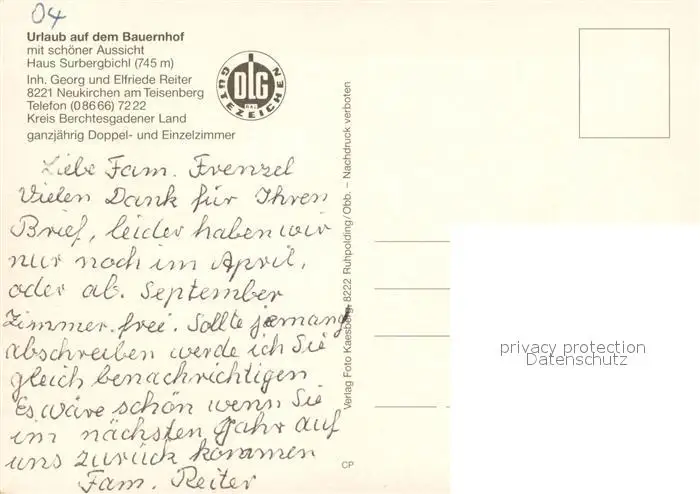 04
Urlaub auf dem Bauernhof
mit schöner Aussicht
Haus Surbergbichl (745 m)
Inh. Georg und Elfriede Reiter
8221 Neukirchen am Teisenberg
Telefon (0 86 66) 72 22
Kreis Berchtesgadener Land
ganzjährig Doppel- und Einzelzimmer
DLG
RAL
GÜTEZEICHEN
Liebe Fam. Frenzel
Vielen Dank für Ihren
Brief, leider haben wir
nur noch im April,
oder ab. September
Zimmer frei. Sollte jemang
abschreiben werde ich Sie
gleich benachrichtigen
Es wäre schön wenn Sie
im nächsten Jahr auf
uns zurück kommen
Fam. Reiter
Verlag Foto Kaesberg, 8222 Ruhpolding/Obb. – Nachdruck verboten
CP
privacy protection
Datenschutz